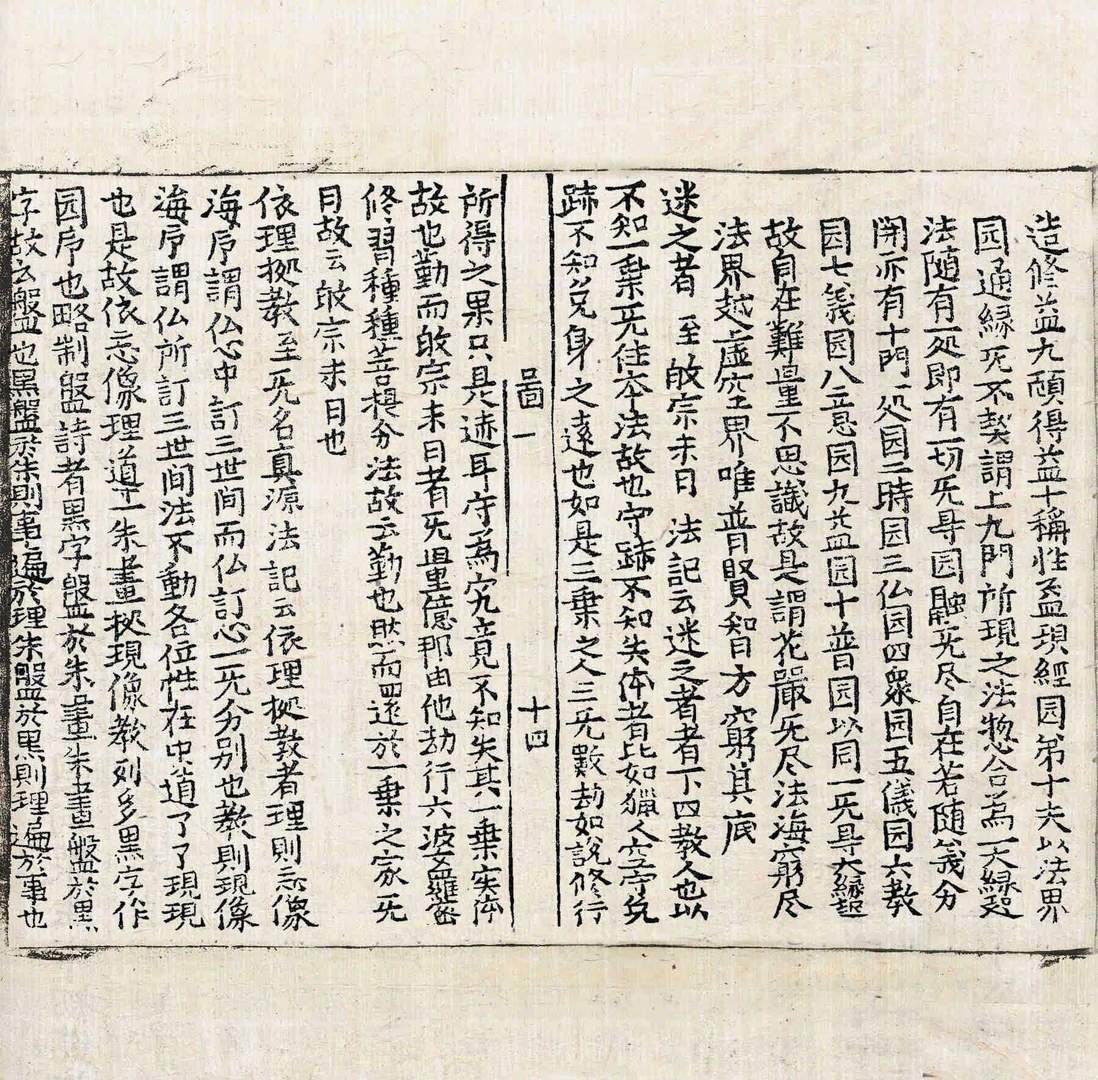 造修益九頓得益十稱性益現經园第十夫以法界
园通緣旡不契謂上九門所現之法惣合為一大緣起
法随有一処即有一切旡㝵园融旡尽自在若随義分
開亦有十門一処园二時园三仏园四衆园五儀园六教
园七義园八立园九益园十普园以同一旡㝵大緣起
故自在難量不思議故是謂花嚴旡尽法海窮尽
法界越虛空界唯普賢智方窮其底
迷之者 至故宗未日 法記云迷之者者下四教人也以
不知一乗旡住本法故也守跡不知失体者比如獵人空守兔
跡不知兔身之遠也如是三乗之人三旡數劫如說修行
啚一 十四
所得之果只是迹耳守為究竟不知失其一乗実体
故也勤而故宗未日者旡量億那由他劫行六波羅蜜
修習種種菩提分法故云勤也然而四遠於一乗之家旡
日故云故宗未日也
依理拠教至旡名真源法記云依理拠教者理則忘像
海印謂仏心中訂三世間而仏訂心一旡分別也教則現像
海印謂仏所訂三世間法不動各位性在中道了了現現
也是故依忘像理道一朱畫拠現像教列多黑字作
园印也略制盤詩者黑字盤於朱畫朱畫盤於黑
字故云盤也黑盤於朱則事遍於理朱盤於黑則理遍於事也